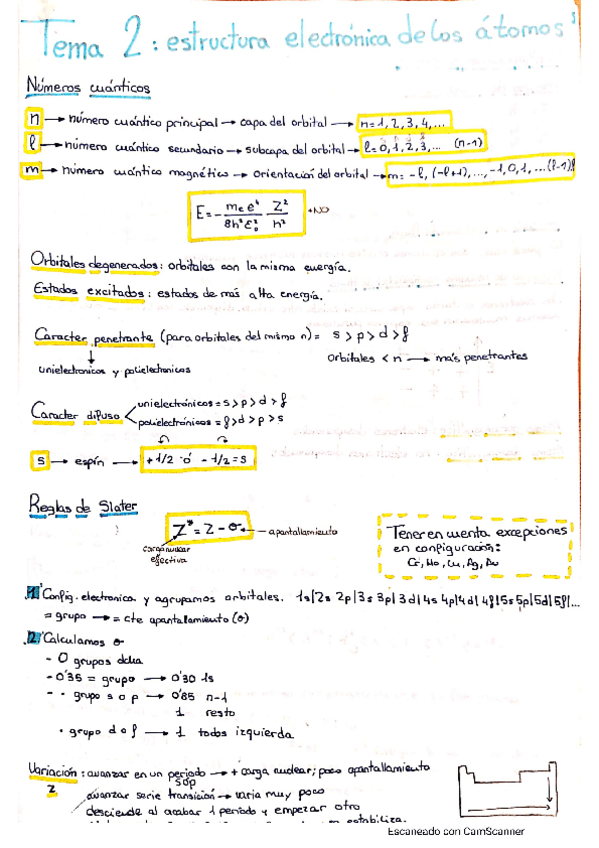 Tema 2: estructura electrónica de los átomos
Números cuánticos
n → número cuántico principal → capa del orbital → n=1,2,3,4,...
l → número cuántico secundario → subcapa del orbital → l=0,1,2,3,... (n-1)
m → número cuántico magnético → orientación del orbital → m= -l, (-l+1), ..., -1,0,1, ...(l-1)l
E = - (me e⁴ / 8h²ε₀²) (Z² / n²) → NO
Orbitales degenerados: orbitales con la misma energía.
Estados excitados: estados de más alta energía.
Caracter penetrante (para orbitales del mismo n) = s > p > d > f
unielectronicos y polielectronicos
orbitales < n → más penetrantes
Caracter difuso
unielectrónicos = s > p > d > f
polielectrónicos = f > d > p > s
s → espín → +1/2 ó -1/2 = s
Reglas de Slater
Z* = Z - σ ← apantallamiento
carga nuclear efectiva
Tener en cuenta excepciones
en configuración:
Cr, Mo, Cu, Ag, Au
1º Config. electronica y agrupamos orbitales. 1s|2s 2p|3s 3p|3d|4s 4p|4d|4f|5s 5p|5d|5f|...
= grupo → = cte apantallamiento (σ)
2º Calculamos σ
- 0 grupos dcha
- 0'35 = grupo → 0'30 1s
- · grupo s o p → 0'85 n-1
1 resto
· grupo d o f → 1 todos izquierda
Variación: avanzar en un periodo → + carga nuclear; poco apantallamiento
s o p
Z
avanzar serie transición → varia muy poco
desciende al acabar 1 periodo y empezar otro
estabiliza.
Escaneado con CamScanner